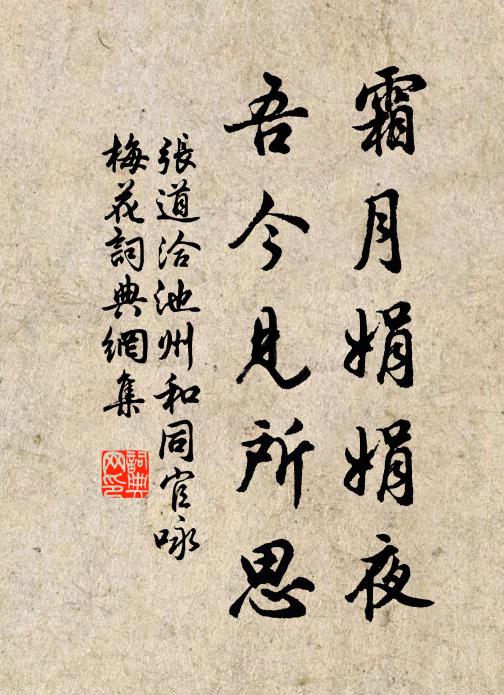 霜月娟娟夜
吾今見所思
張道洽池州和同官咏
梅花詞典網集
詞典网印